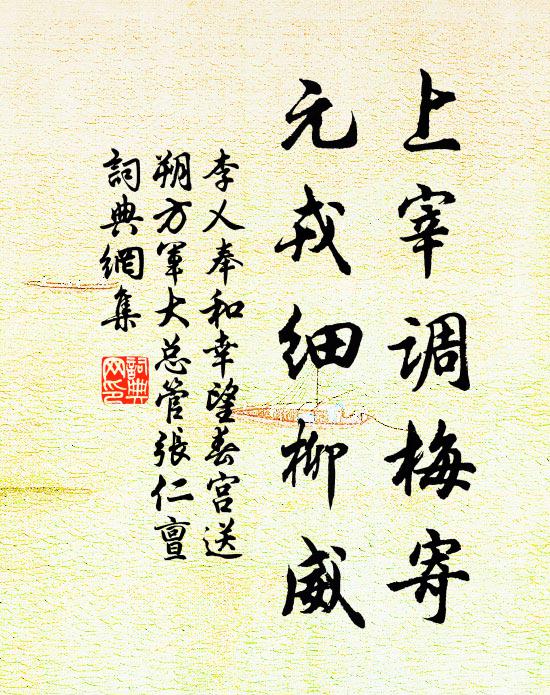 上宰调梅寄
元戎细柳威
李乂奉和幸望春宫送
朔方軍大总管張仁亶
詞典網集
詞典
网印